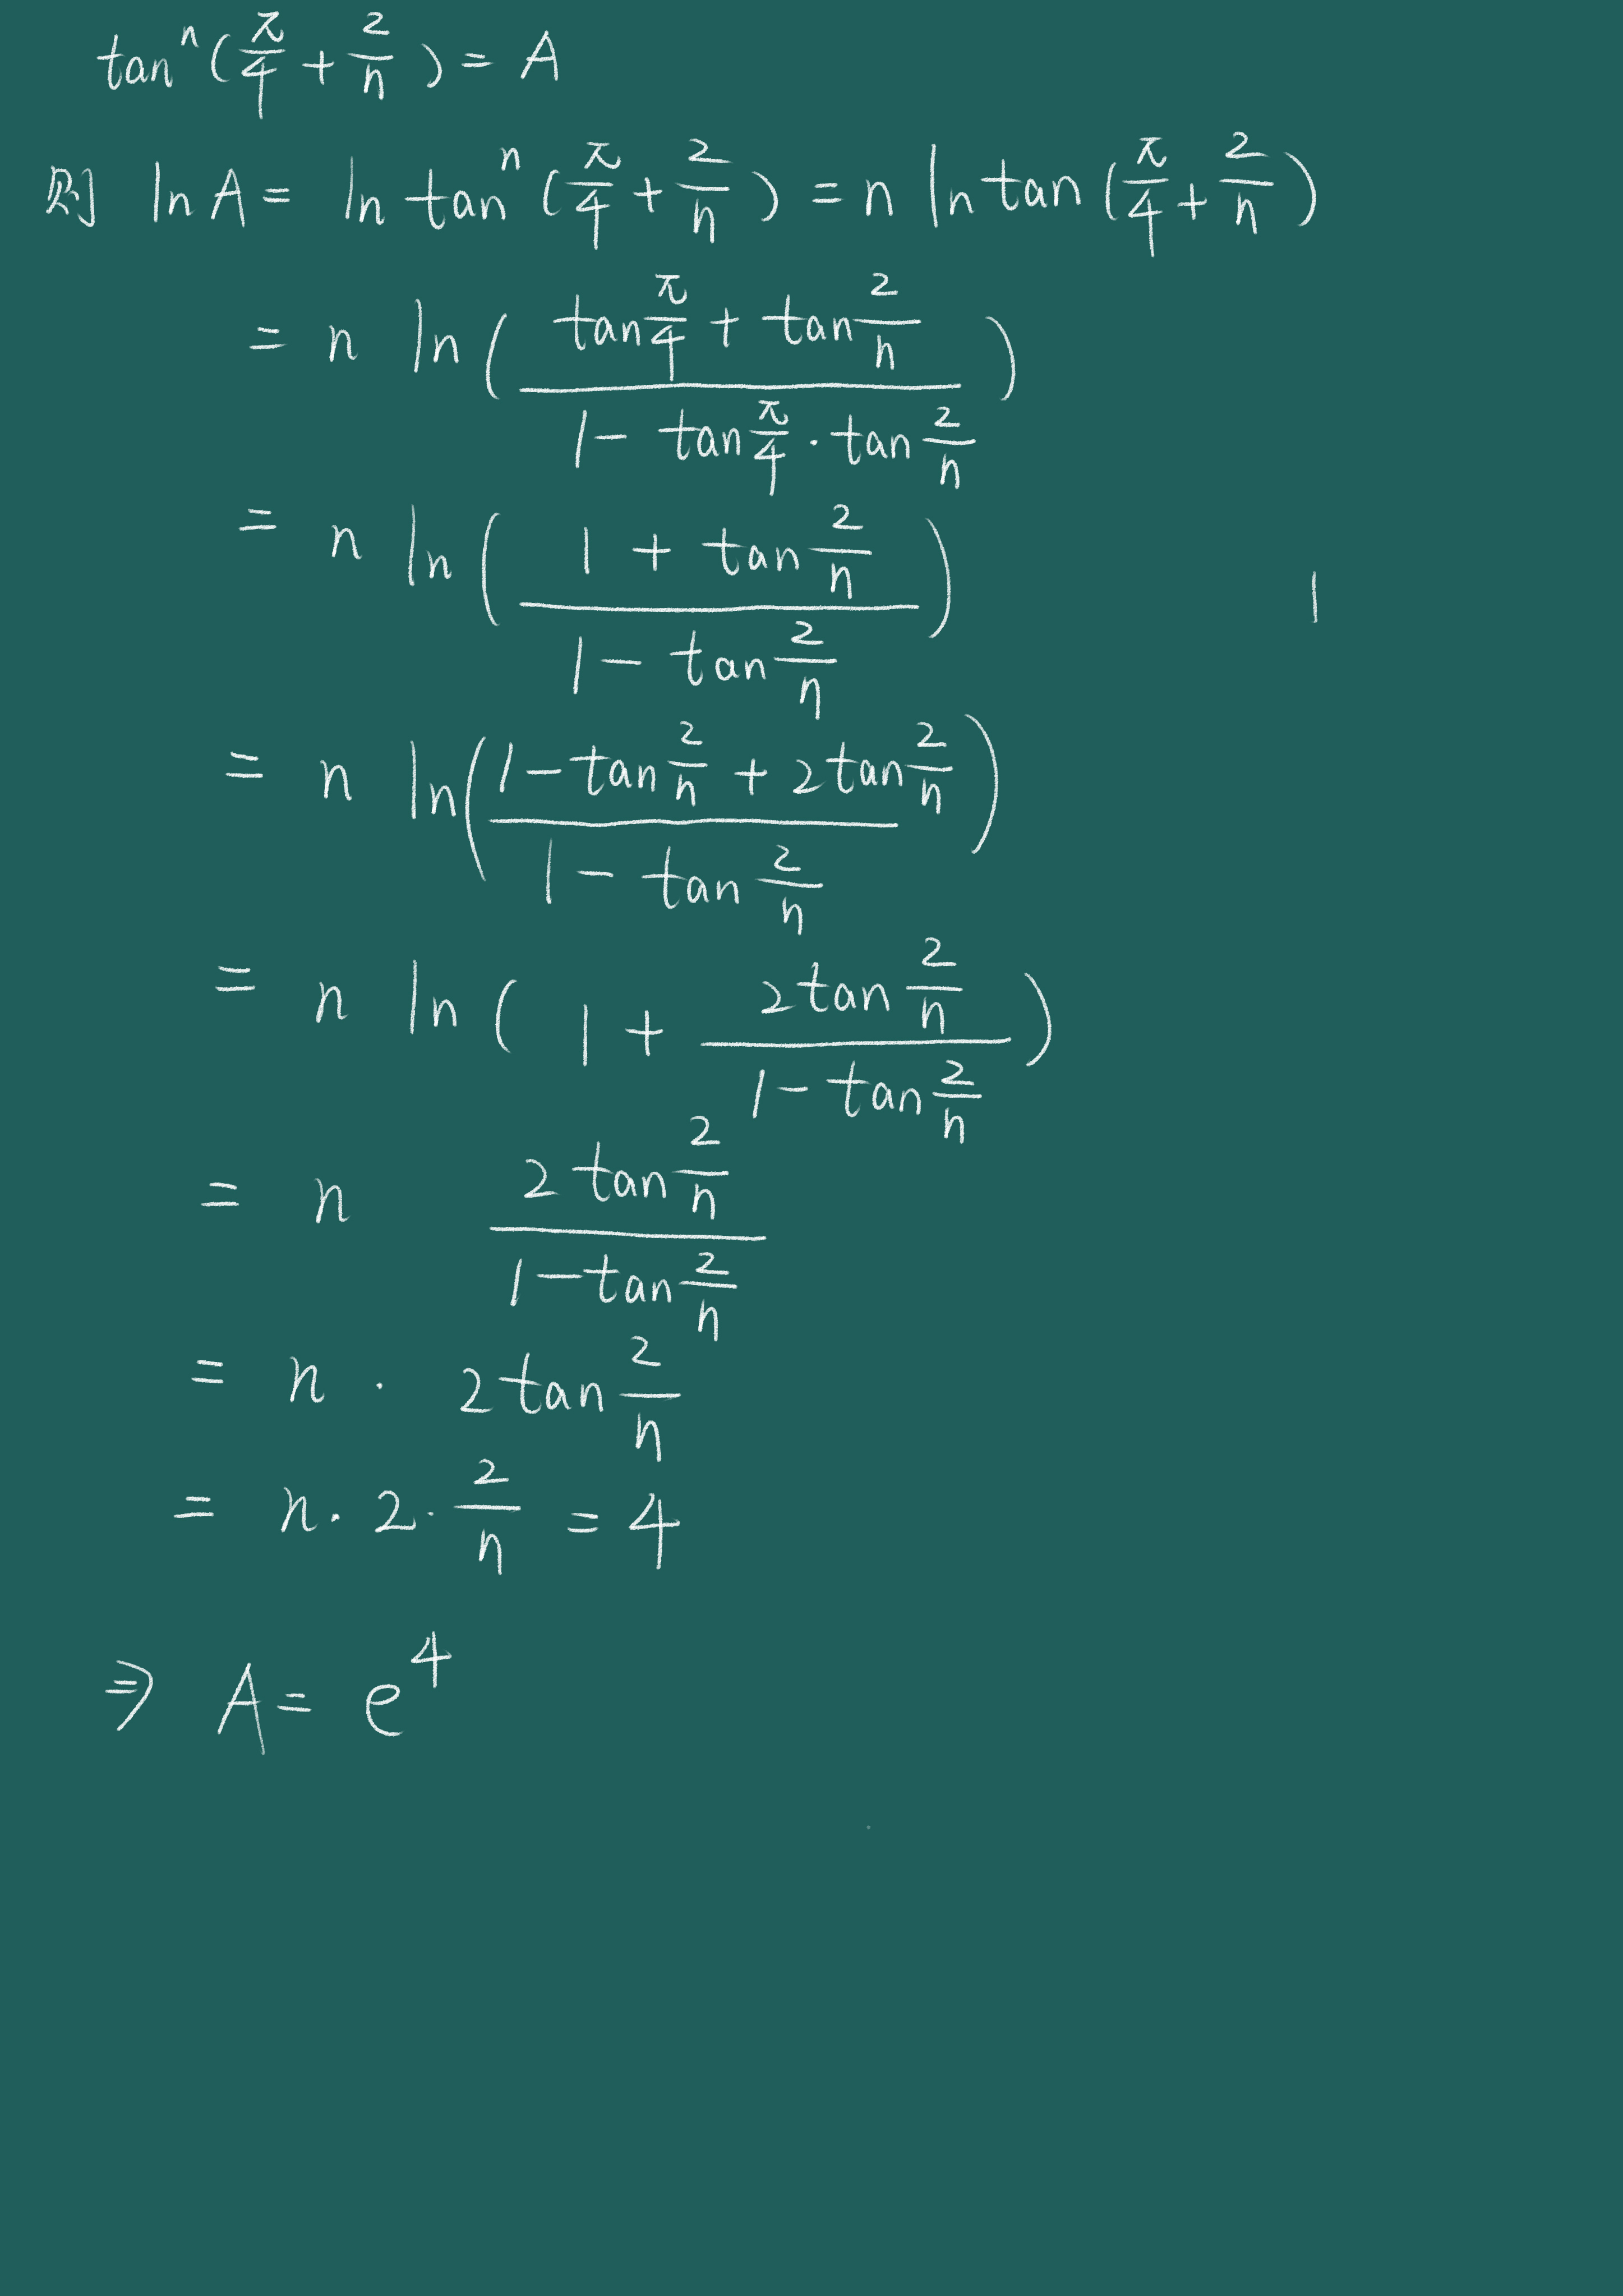 tan^n(π/4 + 2/n) = A
则 ln A = ln tan^n(π/4 + 2/n) = n ln tan(π/4 + 2/n)
= n ln((tan π/4 + tan 2/n)/(1 - tan π/4 · tan 2/n))
= n ln((1 + tan 2/n)/(1 - tan 2/n)) 1
= n ln((1 - tan 2/n + 2tan 2/n)/(1 - tan 2/n))
= n ln(1 + (2tan 2/n)/(1 - tan 2/n))
= n (2tan 2/n)/(1 - tan 2/n)
= n · 2tan 2/n
= n · 2 · 2/n = 4
⇒ A = e^4